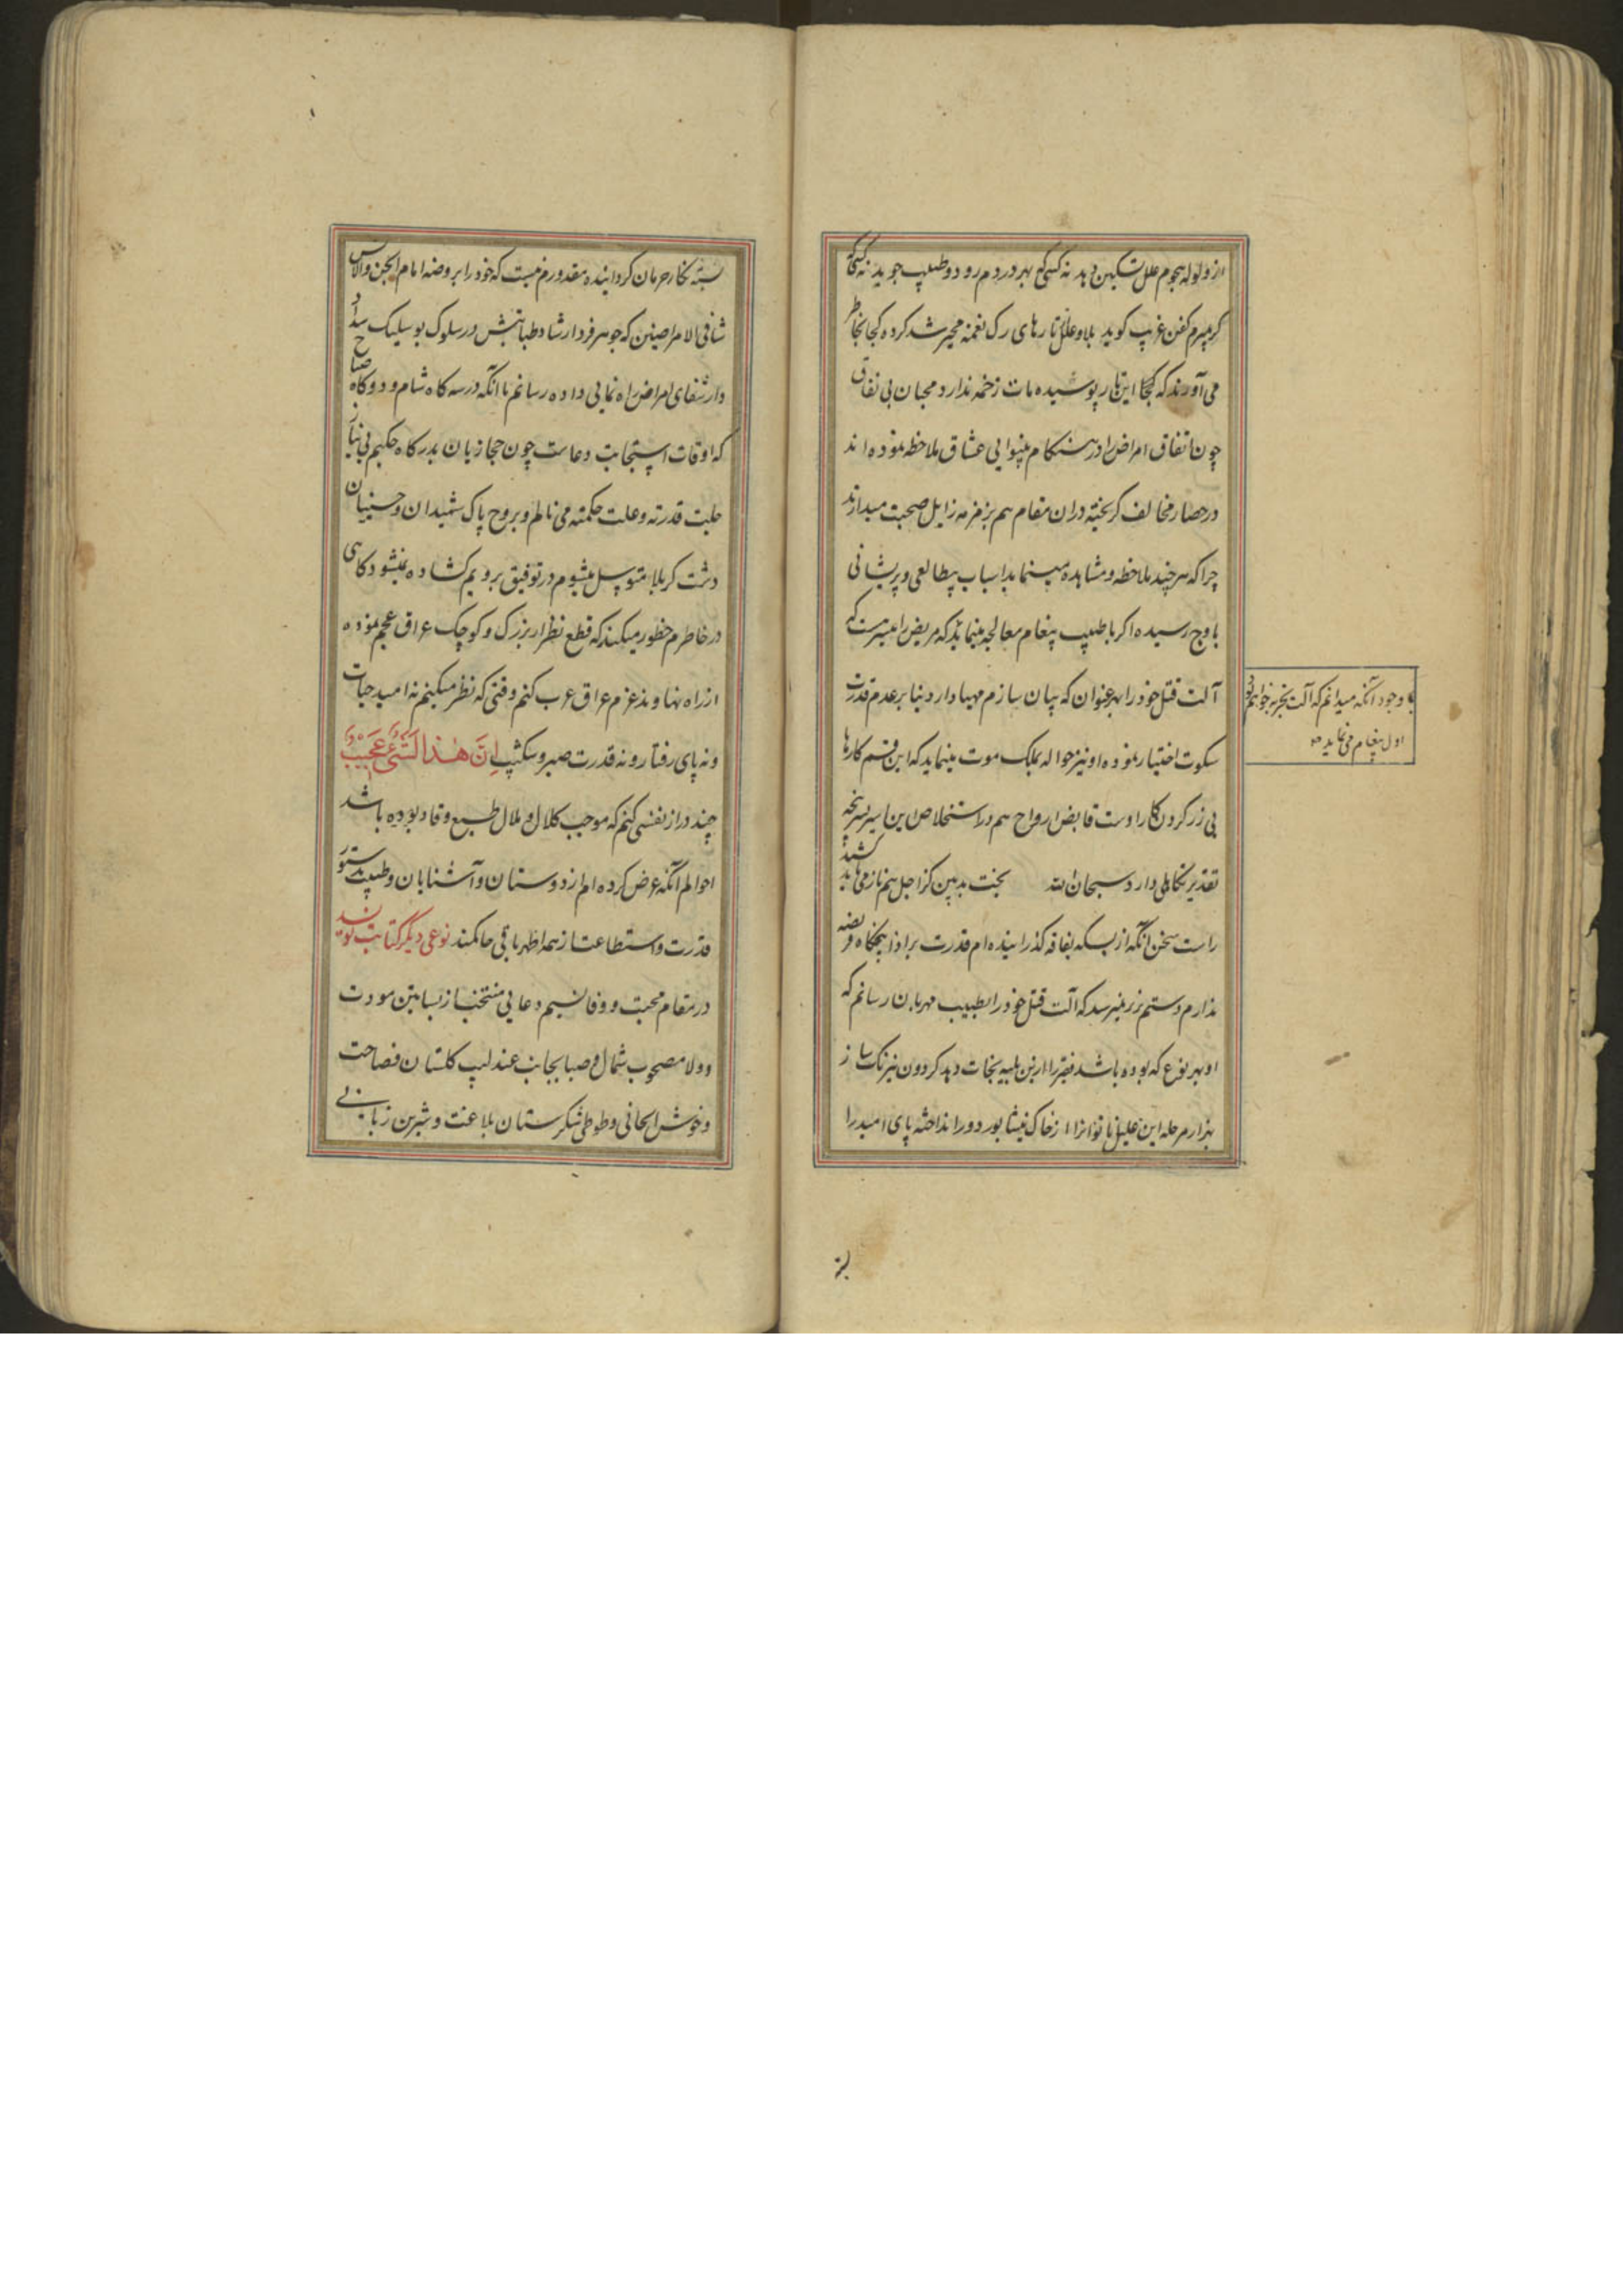 از ولوله هجوم علل تسکین دهد نه کسی که بهر دردم رود و طبیب جوید نه کسی که
کر میرم کفن غریب کوید بلا و علل تا رهای رک نغمه محیر شد کرده کجا بخاطر
می آورند که کجا این تار پوسیده مات زخمه ندارد و محبان بی نفاق
چون اتفاق امراض را در هنکام بینوایی عشاق ملاحظه نموده اند
در حصار مخالف کریخته در ان مقام هم بزمزمه زایل صحبت میدارند
چرا که هر چند ملاحظه و مشاهده مینماید اسباب بیطالعی و پریشانی
باوج رسیده اکر با طبیب پیغام معالجه مینماید که مریض را میسر نیست که
با وجود آنکه میدانم که آلت تجربه خواهم بود
اول پیغام می نماید
آلت قتل خود را بهر عنوان که بیان سازم مهیا دارد بنا بر عدم قدرت
سکوت اختیار نموده او نیز حواله بملک موت مینماید که این قسم کارها
بی زر کردن کار اوست قابض ارواح هم در استخلاص این اسیر سرپنجه
تقدیر تکاهلی دارد سبحان الله بخت بد بین کز اجل هم ناز می باید کشید
راست سخن آنکه از بسکه بفاقه کذرانیده ام قدرت بر ادا پنجکاه فریضه
ندارم دستم بزر نمیرسد که آلت قتل خود را بطبیب مهربان رسانم که
او بهر نوع که بوده باشد فقیر را ازین بلیه نجات دهد کردون نیرنک ساز
هزار مرحله این علیل ناتوانرا از خاک نیشابور دور انداخته پای امید را
بسته
بسته بخار حرمان کردانیده مقدورم نیست که خود را بروضه امام الجن والانس
شافی الامراضین که جوهر فرد ارشاد طبابتش در سلوک بوسلیک سد
دار شفای امراض راه نمایی داده رسانم با آنکه در سه کاه شام و دو کاه صباح
که اوقات استجابت دعاست چون حجازیان بدرکاه حکیم بی نیاز
جلت قدرته و علت حکمته می نالم و بروح پاک شهیدان و حسینیان
دشت کربلا متوسل میشوم در توفیق برویم کشاده نمیشود کاهی
در خاطرم خطور میکند که قطع نظر از بزرک و کوچک عراق عجم نموده
از راه نهاوند عزم عراق عرب کنم وقتی که نظر میکنم نه امید حیات
و نه پای رفتار و نه قدرت صبر و شکیب اِنَّ هٰذا لَشَیءٌ عَجیبٌ
چند دراز نفسی کنم که موجب کلال و ملال طبع وقاد بوده باشد
احوالم آنکه عرض کرده ام از دوستان و آشنایان و طبیب بدستور
قدرت و استطاعت از همه اظهر باقی حاکمند نوعی دیکر کتابت نویسند
در مقام محبت و وفا نسیم دعایی منتخب از بساتین مودت
و ولا مصحوب شمال و صبا بجانب عندلیب کلستان فصاحت
و خوش الحانی و طوطی شکرستان بلاغت و شیرین زبانی